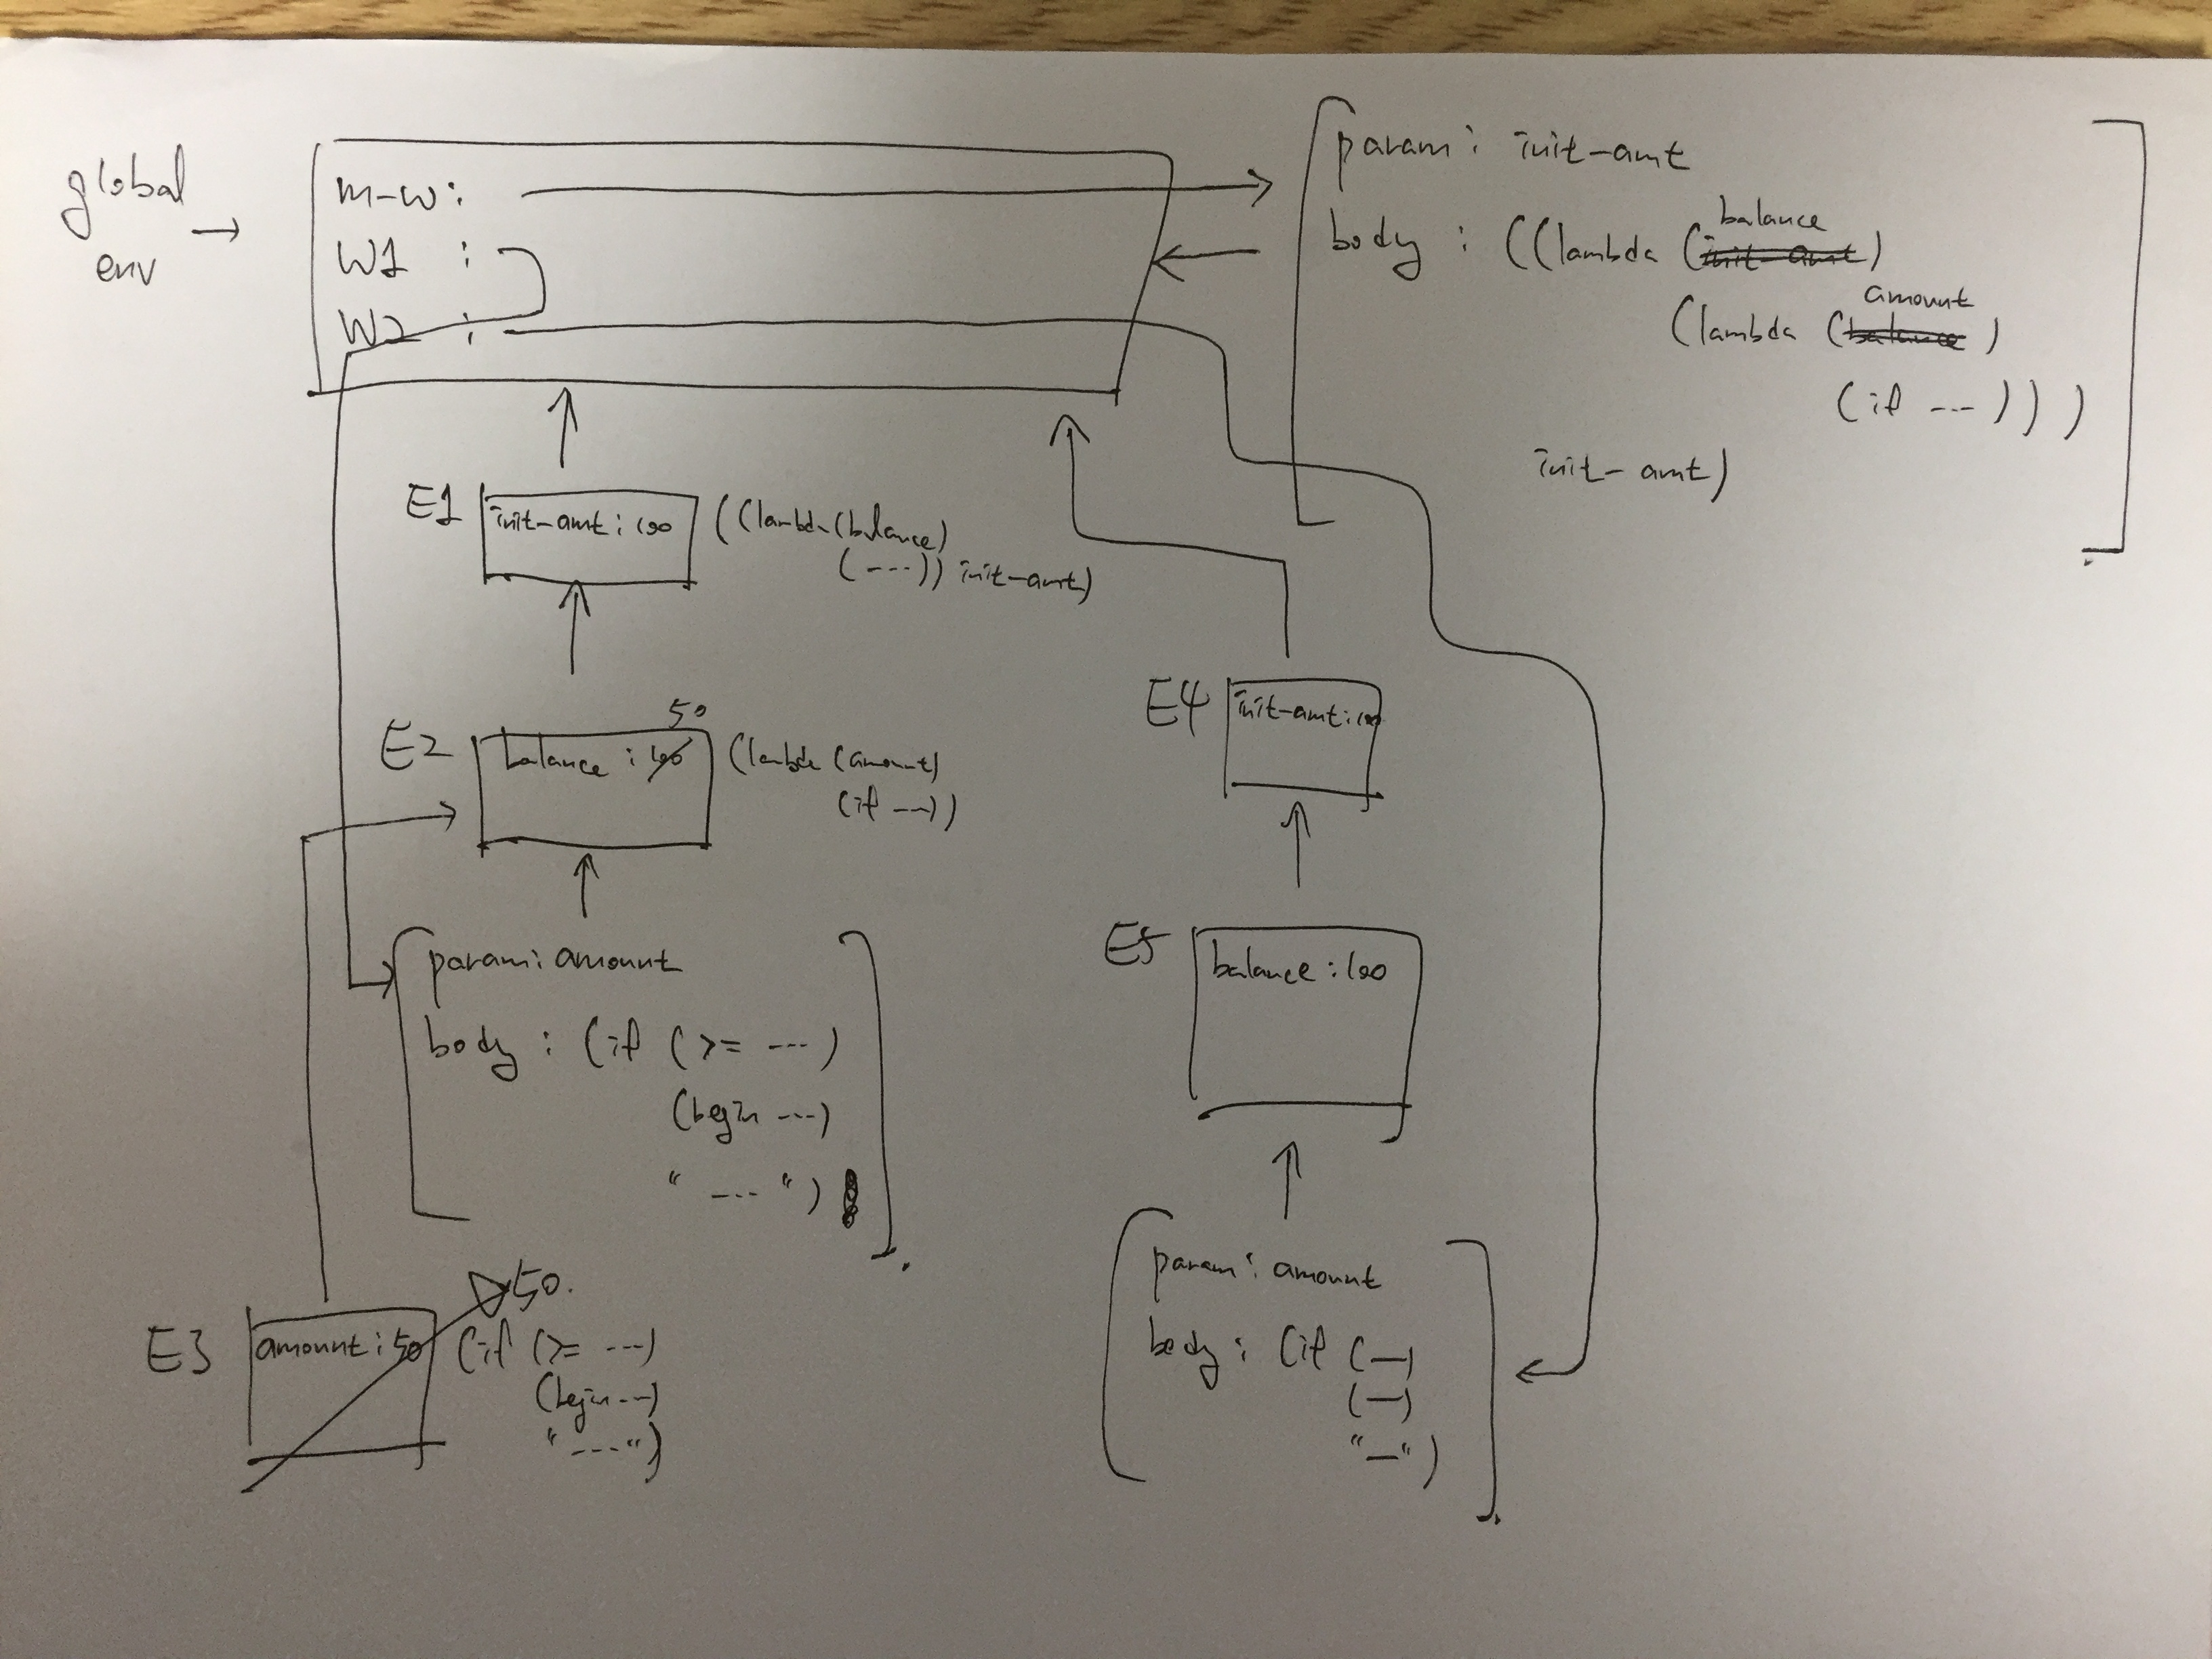 global
env
m-w:
W1 :
W2 :
param: init-amt
body : ((lambda (balance)
(lambda (amount)
(if ---)))
init-amt)
E1
init-amt: 100
((lambda (balance)
(---)) init-amt)
E2
50
balance : 100
(lambda (amount)
(if ---))
param: amount
body : (if (>= ---)
(begin ---)
" --- ")
E3
amount: 50
50.
(if (>= ---)
(begin ---)
" --- ")
E4
init-amt: 100
E5
balance : 100
param: amount
body : (if (—)
(—)
"—")